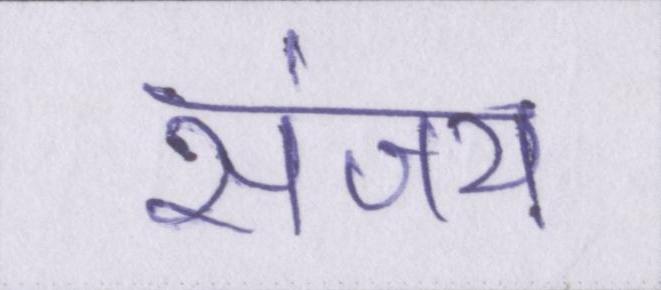 संजय